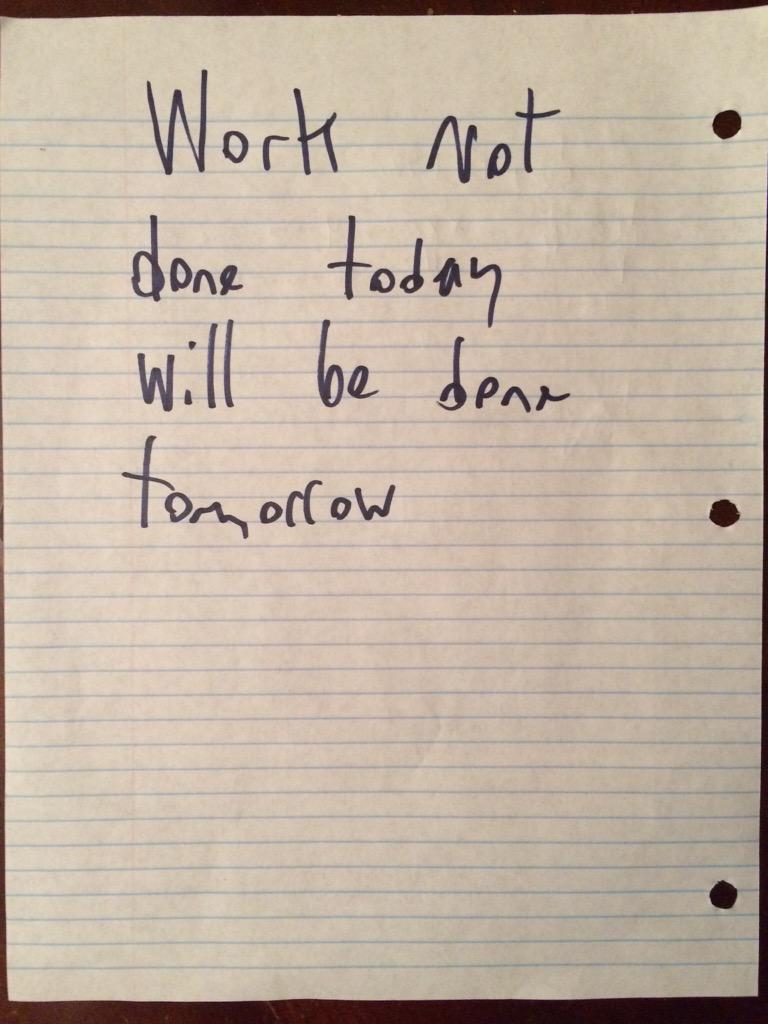 Work not
done today
will be done
tomorrow